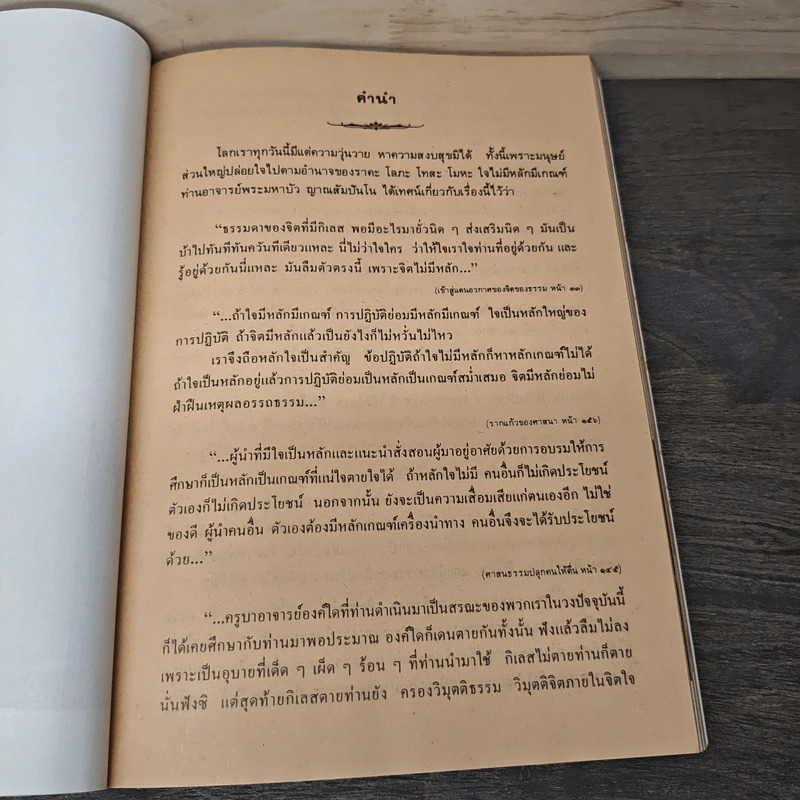 คำนำ
โลกเราทุกวันนี้มีแต่ความวุ่นวาย หาความสงบสุขมิได้ ทั้งนี้เพราะมนุษย์
ส่วนใหญ่ปล่อยใจไปตามอำนาจของราคะ โลภะ โทสะ โมหะ ใจไม่มีหลักมีเกณฑ์
ท่านอาจารย์พระมหาบัว ญาณสัมปันโน ได้เทศน์เกี่ยวกับเรื่องนี้ไว้ว่า
“ธรรมดาของจิตที่มีกิเลส พอมีอะไรมายั่วนิด ๆ ส่งเสริมนิด ๆ มันเป็น
บ้าไปทันทีทันควันทีเดียวแหละ นี่ไม่ว่าใจใคร ว่าให้ใจเราใจท่านที่อยู่ด้วยกัน และ
รู้อยู่ด้วยกันนี่แหละ มันลืมตัวตรงนี้ เพราะจิตไม่มีหลัก...”
(เข้าสู่แดนอวกาศของจิตของธรรม หน้า ๓๓)
“...ถ้าใจมีหลักมีเกณฑ์ การปฏิบัติย่อมมีหลักมีเกณฑ์ ใจเป็นหลักใหญ่ของ
การปฏิบัติ ถ้าจิตมีหลักแล้วเป็นยังไงก็ไม่หวั่นไม่ไหว
เราจึงถือหลักใจเป็นสำคัญ ข้อปฏิบัติถ้าใจไม่มีหลักก็หาหลักเกณฑ์ไม่ได้
ถ้าใจเป็นหลักอยู่แล้วการปฏิบัติย่อมเป็นหลักเป็นเกณฑ์สม่ำเสมอ จิตมีหลักย่อมไม่
ฝ่าฝืนเหตุผลอรรถธรรม...”
(รากแก้วของศาสนา หน้า ๑๕๖)
“...ผู้นำที่มีใจเป็นหลักและแนะนำสั่งสอนผู้มาอยู่อาศัยด้วยการอบรมให้การ
ศึกษาก็เป็นหลักเป็นเกณฑ์ที่แน่ใจตายใจได้ ถ้าหลักใจไม่มี คนอื่นก็ไม่เกิดประโยชน์
ตัวเองก็ไม่เกิดประโยชน์ นอกจากนั้น ยังจะเป็นความเสื่อมเสียแก่ตนเองอีก ไม่ใช่
ของดี ผู้นำคนอื่น ตัวเองต้องมีหลักเกณฑ์เครื่องนำทาง คนอื่นจึงจะได้รับประโยชน์
ด้วย...”
(ศาสนธรรมปลุกคนให้ตื่น หน้า ๑๔๕)
“...ครูบาอาจารย์องค์ใดที่ท่านดำเนินมาเป็นสรณะของพวกเราในวงปัจจุบันนี้
ก็ได้เคยศึกษากับท่านมาพอประมาณ องค์ใดก็เดนตายกันทั้งนั้น ฟังแล้วลืมไม่ลง
เพราะเป็นอุบายที่เด็ด ๆ เผ็ด ๆ ร้อน ๆ ที่ท่านนำมาใช้ กิเลสไม่ตายท่านก็ตาย
นั่นฟังซิ แต่สุดท้ายกิเลสตายท่านยัง ครองวิมุตติธรรม วิมุตติจิตภายในจิตใจ